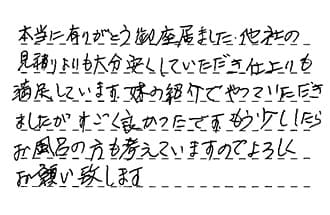 本当に有りがとう御座居ました.他社の
見積りよりも大分安くしていただき仕上りも
満足しています.妹の紹介でやっていただき
ましたがすごく良かったです.もう少ししたら
お風呂の方も考えていますのでよろしく
お願い致します